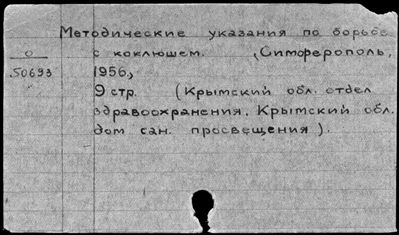 Методические указания по борьбе
с коклюшем. (Симферополь,
1956,)
9 стр. (Крымский обл. отдел
здравоохранения. Крымский обл.
дом сан. просвещения).
О
50693